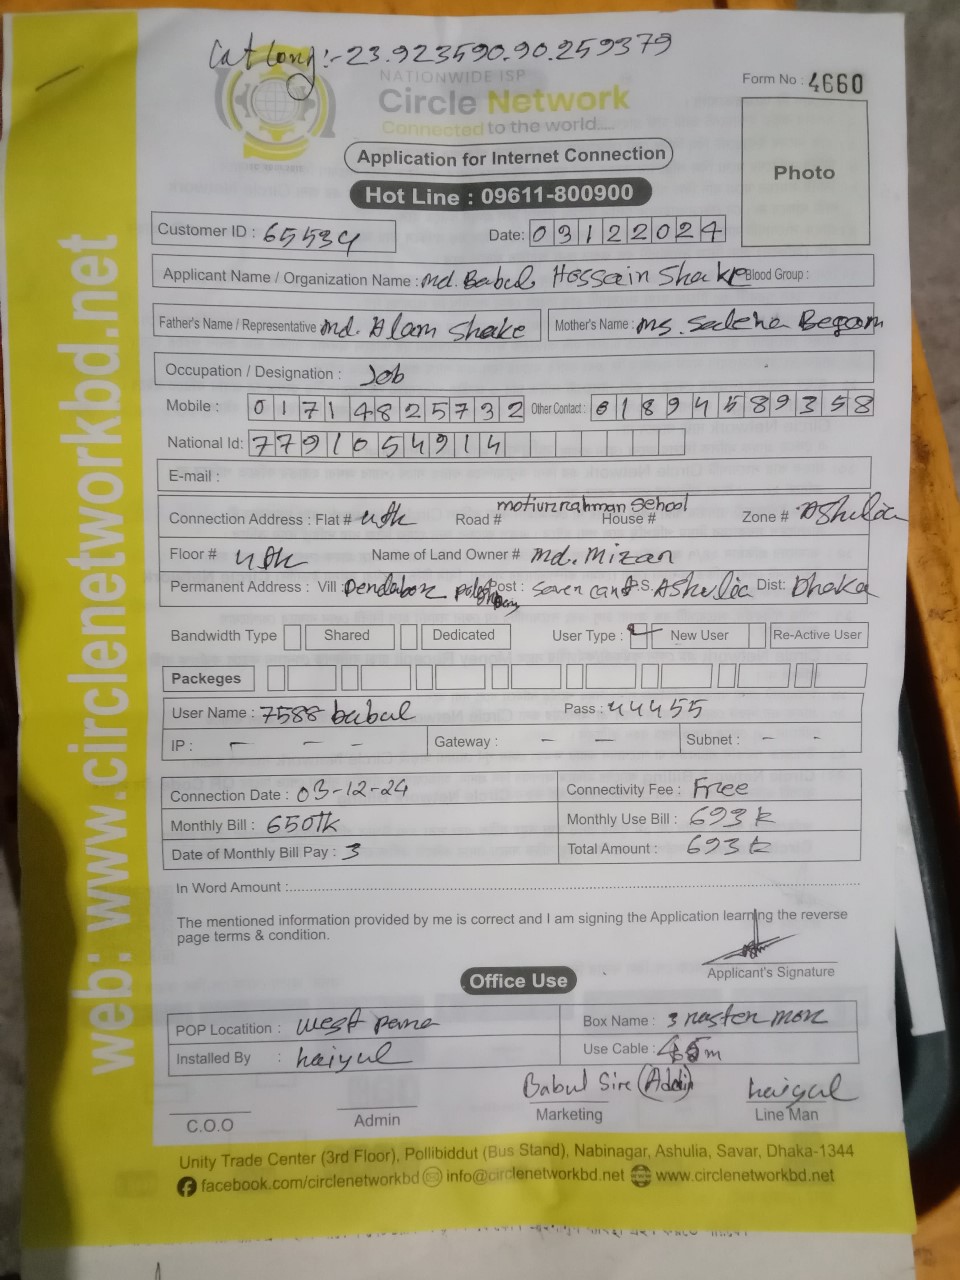 Cat Long:- 23.923590.90.259379
NATIONWIDE ISP
Circle Network
Connected to the world....
Form No : 4660
Application for Internet Connection
Photo
Hot Line : 09611-800900
Customer ID : 65534 Date: 03122024
Applicant Name / Organization Name : Md. Babul Hossain Shake Blood Group :
Father's Name / Representative Md. Alam Shake Mother's Name : Ms. Saleha Begam
Occupation / Designation : Job
Mobile : 01714825732 Other Contact : 01894589358
National Id: 7791054914
E-mail :
Connection Address : Flat # Road # motiurrahman School House # Zone # Ashulia
Floor # Name of Land Owner # Md. Mizan
Permanent Address : Vill Dendabor Post : Seven P.S. Ashulia Dist: Dhaka
Bandwidth Type Shared Dedicated User Type : New User Re-Active User
Packeges
User Name : 7588 babul Pass : 44455
IP : - - - Gateway : - - Subnet : - -
Connection Date : 03-12-24 Connectivity Fee : Free
Monthly Bill : 650tk Monthly Use Bill : 693 tk
Date of Monthly Bill Pay : 3 Total Amount : 693 tk
In Word Amount :
The mentioned information provided by me is correct and I am signing the Application learning the reverse
page terms & condition.
Applicant's Signature
Office Use
POP Locatition : West Box Name :
Installed By : haiyul Use Cable : 45m
Babul Sire haiyul
C.O.O Admin Marketing Line Man
Unity Trade Center (3rd Floor), Pollibiddut (Bus Stand), Nabinagar, Ashulia, Savar, Dhaka-1344
facebook.com/circlenetworkbd info@circlenetworkbd.net www.circlenetworkbd.net
web: www.circlenetworkbd.net